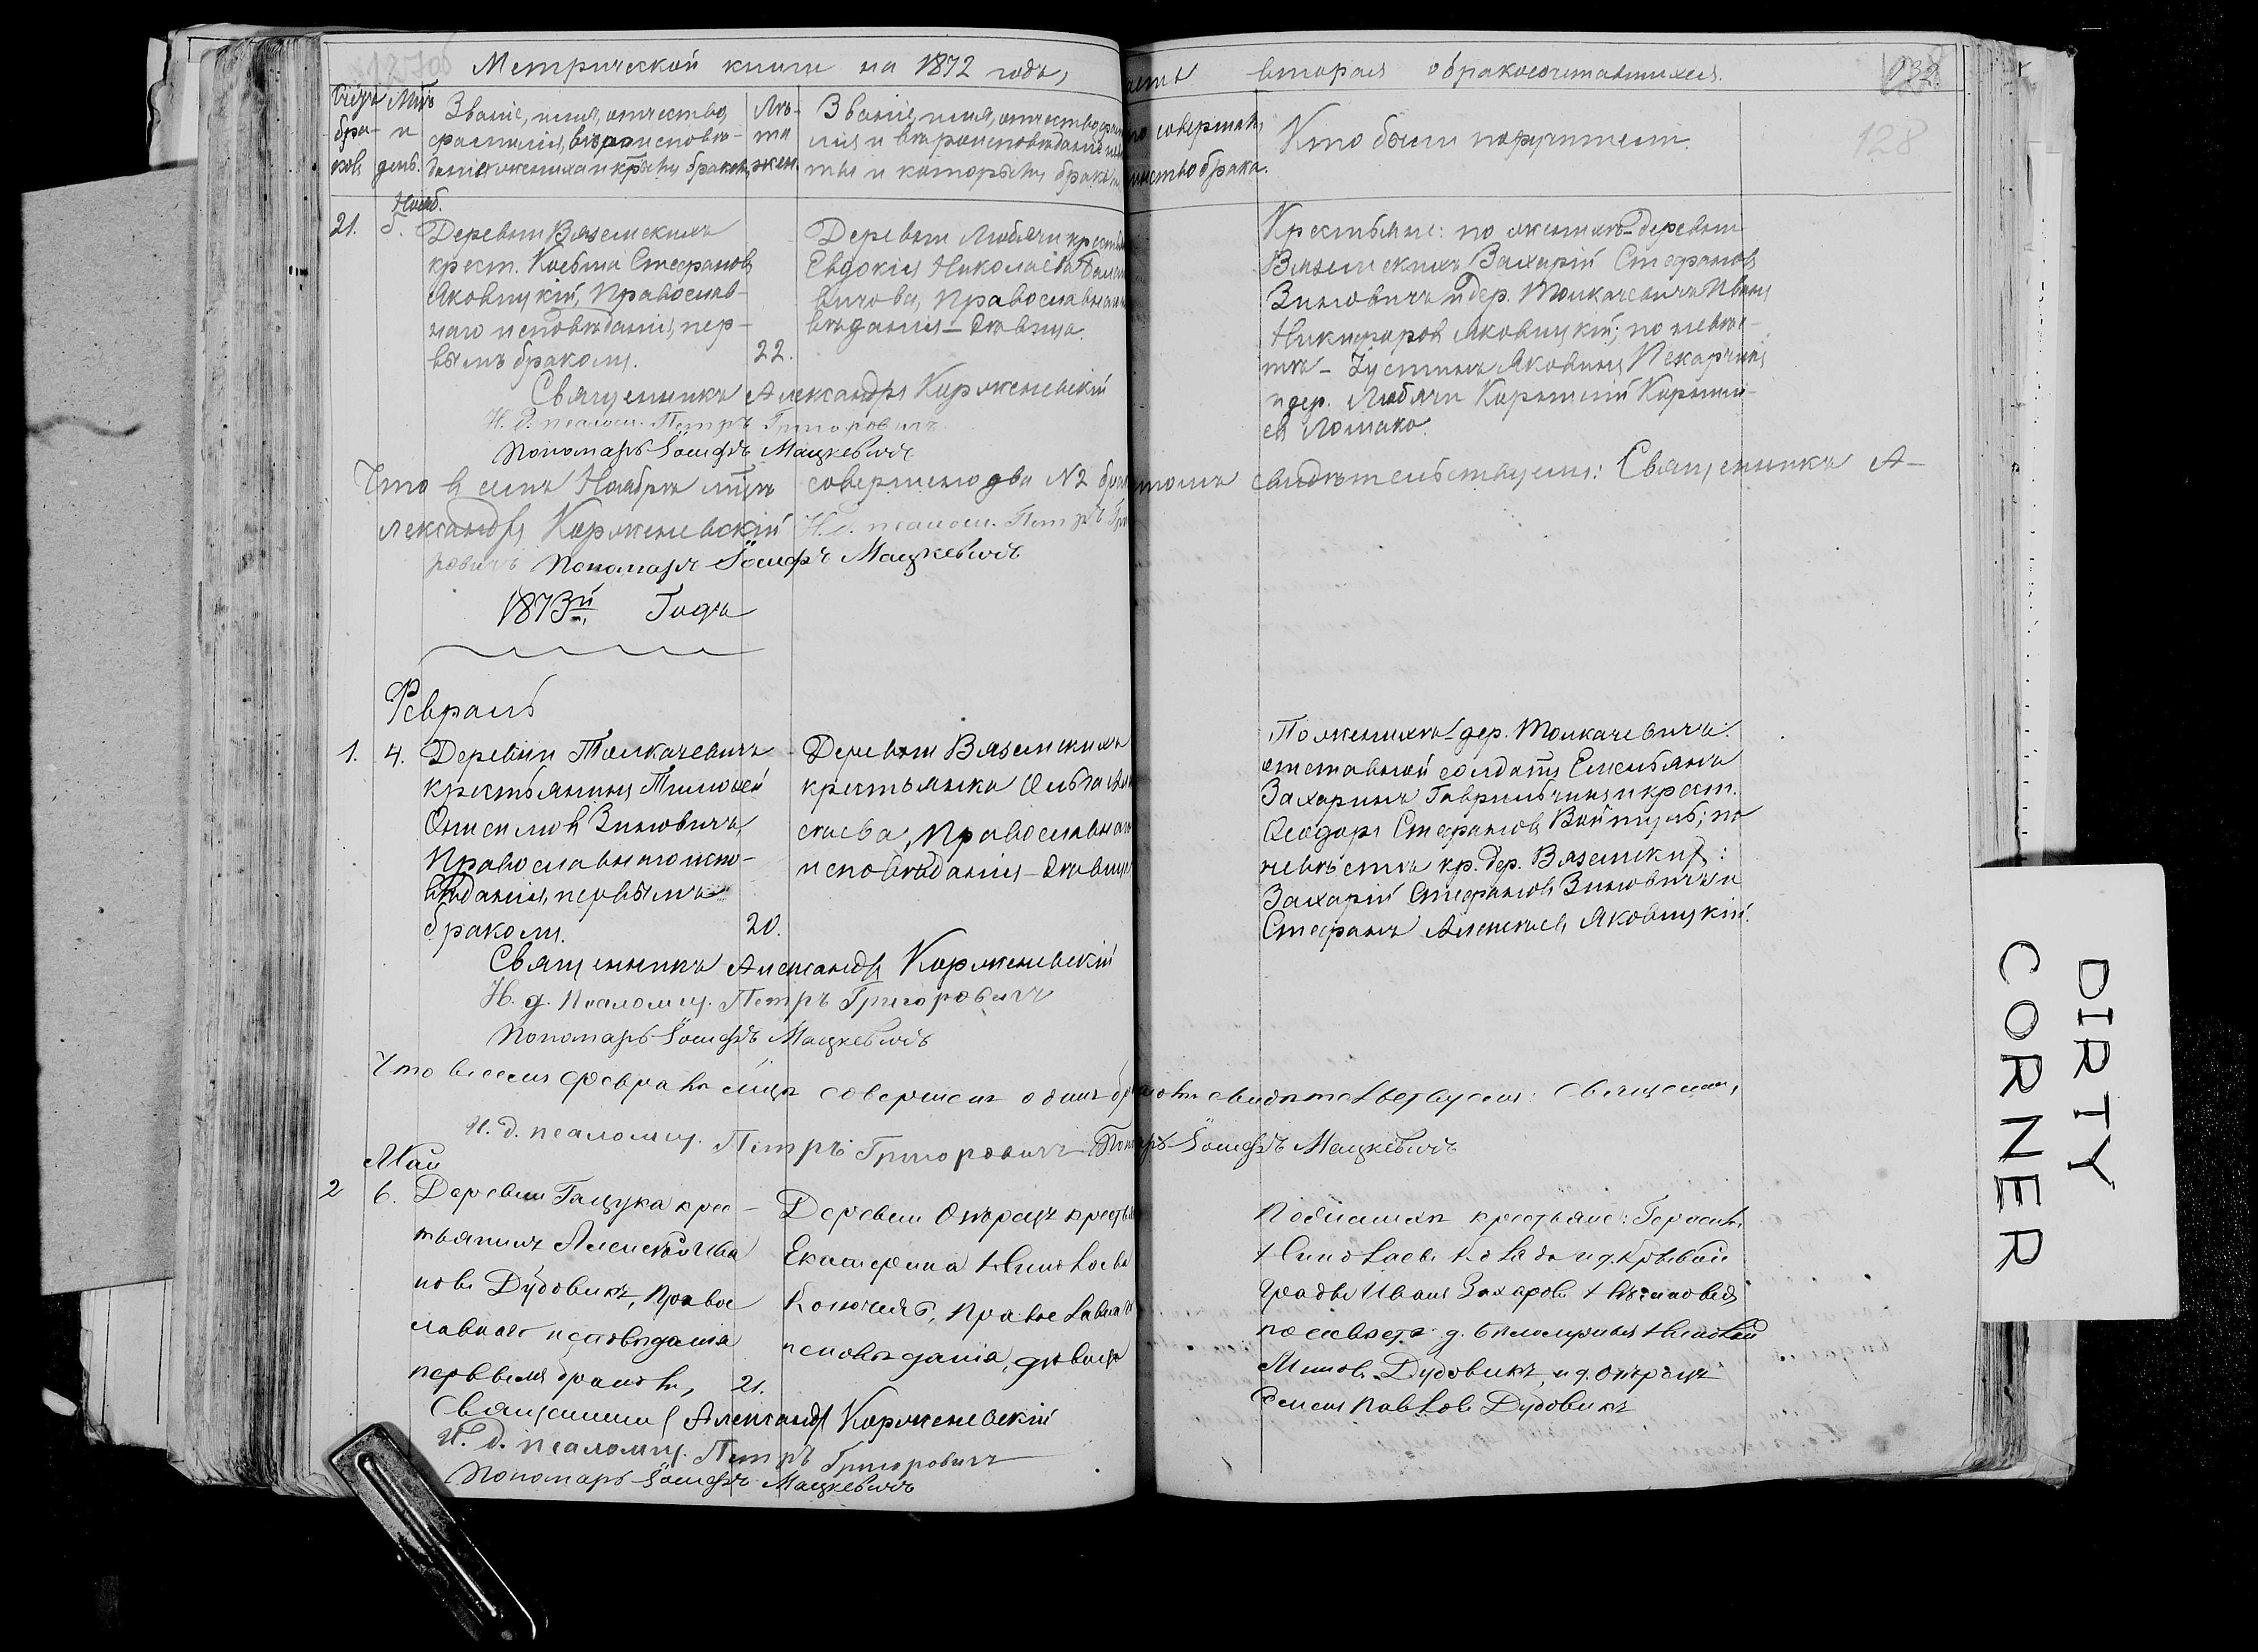 Метрической книги на 1872 годъ,
вторая о бракосочетавшихся.
128
Счетъ браковъ
Мцъ и день.
Званіе, имя, отчество,
фамилія, вѣроисповѣ-
даніе жениха и кр҃ымъ бракомъ
Лѣ-
та
жен.
Званіе, имя, отчество, фам
лія и вѣроисповѣданіе
ты и которымъ бракомъ
совершалъ
инство брака.
Кто были поручители.
Нояб.
21. 5. Деревни Вяземскихъ
крест. Косьма Стефановъ
Яковицкій, Православ-
наго исповѣданія, пер-
вымъ бракомъ. 22.
Деревни Любячи крестья
Евдокія Николаева
вичова, Православна
вѣданія – дѣвица.
Крестьяне: по женихѣ – деревни
Вяземскихъ Захарій Стефановъ
Зиновичъ и дер. Толкачевичъ Иванъ
Никифоровъ Яковицкій; по невѣс-
тѣ – Іустинъ Яковинъ
и дер. Любячи Корнилій Корнил-
евъ Ломако.
Священникъ Александръ Корженевскій
И. д. псалом. Петръ Григоровичъ
Пономарь Іосифъ Мацкевичъ
Что въ семъ Ноябрѣ мцѣ совершено два №2 брака
томъ свидѣтельствуемъ: Священникъ А-
лександръ Корженевскій И. д. псалом. Петръ Гри
ровичъ Пономарь Іосифъ Мацкевичъ
1873й Годъ
Февраль
1. 4. Деревни Толкачевичъ
крестьянинъ Тимоѳей
Онисимовъ Зиновичъ,
Православнаго испо-
вѣданія, первымъ
бракомъ. 20.
Деревни Вяземскихъ
крестьянка Ольга
сѣева, Православнаго
исповѣданія – дѣвица
По женихѣ – дер. Толкачевичъ:
отставной солдатъ Емельянъ
Захаринъ Гаврильчикъ и крест.
Ѳеодоръ Стефановъ Войтуль; по
невѣстѣ кр. дер. Вяземскихъ:
Захарій Стефановъ Зиновичъ и
Стефанъ Алексѣевъ Яковицкій.
Священникъ Александръ Корженевскій
И. д. Псаломщ. Петръ Григоровичъ
Пономарь Іосифъ Мацкевичъ
Что въ семъ Февралѣ мцѣ совершенъ одинъ бракъ
томъ свидѣтельствуемъ: Священникъ,
И. д. псаломщ. Петръ Григоровичъ Пономарь Іосифъ Мацкевичъ
Май
2 6. Деревни Гацука крес-
тьянинъ Алексѣй Ива
новъ Дудовикъ, Правос
лавнаго исповѣданія
первымъ бракомъ, 21.
Деревни крестья
Екатерина Николаева
Православнаг
исповѣданія, дѣвица
По женихѣ крестьяне: Герасимъ
Николаевъ Коляда и д. Кривой
Гряды Иванъ Захаровъ
по невѣстѣ д. Николай
Миновъ Дудовикъ, и д.
Семенъ Павловъ Дудовикъ
Священникъ Александръ Корженевскій
И. д. псаломщ. Петръ Григоровичъ
Пономарь Іосифъ Мацкевичъ
DIRTY
CORNER